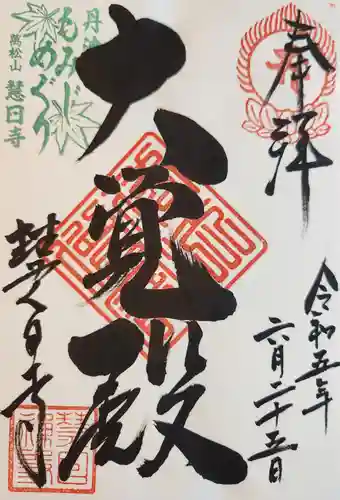 奉拝
令和五年
六月二十五日
大覚殿
慧日寺
丹波
もみじ
めぐり
萬松山
慧日寺